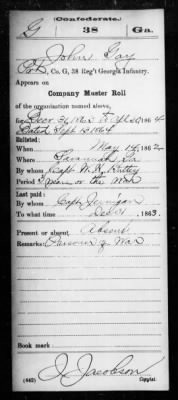 (Confederate.)
G 38 Ga.
John Gay
Pvt, Co. G, 38 Reg't Georgia Infantry.
Appears on
Company Muster Roll
of the organization named above,
for Dec 31, 1863 to Aug 31, 1864
Dated Sept 18 1864
Enlisted:
When May 14, 1862
Where Savannah Ga
By whom Capt W. H.
Period 3 years or the War
Last paid:
By whom Capt Jernigan
To what time Dec 31, 1863.
Present or absent Absent
Remarks: Prisoner of War
Book mark:
J. Jacobson
(642) Copyist.